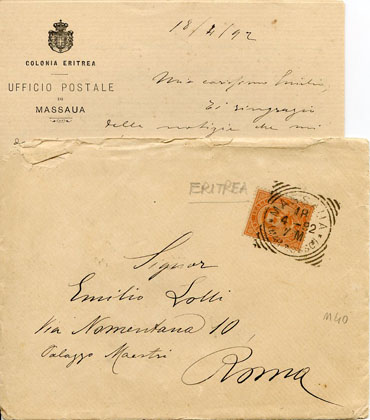 COLONIA ERITREA
UFFICIO POSTALE
DI
MASSAUA
18/4/92
Mio carissimo Emilio,
Ti ringrazio
delle notizie che mi
ERITREA
18
4-92
7 M
Signor
Emilio Lolli
Via Nomentana 10,
Palazzo Maestri
Roma
M40